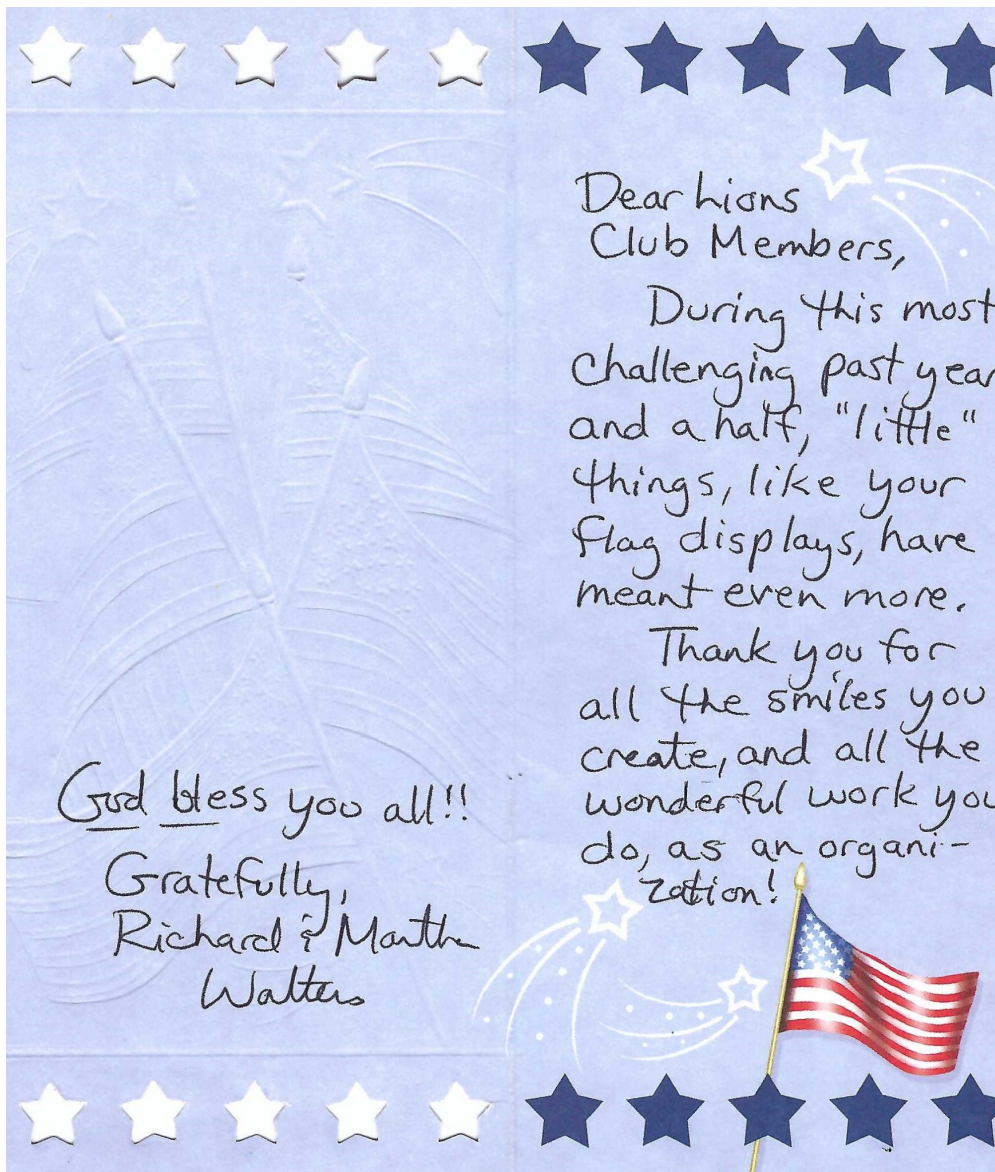 Dear Lions
Club Members,
During this most
challenging past year
and a half, "little"
things, like your
flag displays, have
meant even more.
Thank you for
all the smiles you
create, and all the
wonderful work you
do, as an organi-
zation!
God bless you all!!
Gratefully,
Richard & Martha
Walters